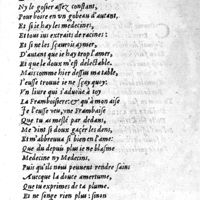 Ny le gosier assez constant,
Pour boire en vn gobeau d'autant,
Et si ie hay les medecines,
Et tous ius extraits de racines:
Et si ne les sçaurois aymer,
D'autant que ie hay trop l'amer,
Et que le doux m'est delectable.
Mais comme hier dessus ma table,
I'eusse trouué ie ne sçay quoy:
Vn liure qui s'adroite à toy
La Framboisiere: & qu'à mon aise
Ie l'eusse veu, vne Frambaise
Que tu as meslé par dedans,
Me vint si doux gaçer les dens,
Et m'abbreuua si bien l'ame:
Que du depuis ie ne blasme
Medecine ny Medecins,
Puis qu'ils nous peuuent rendre sains
Auecque la douce amertume,
Que tu exprimes de ta plume.
Et ne songe rien plus: sinon